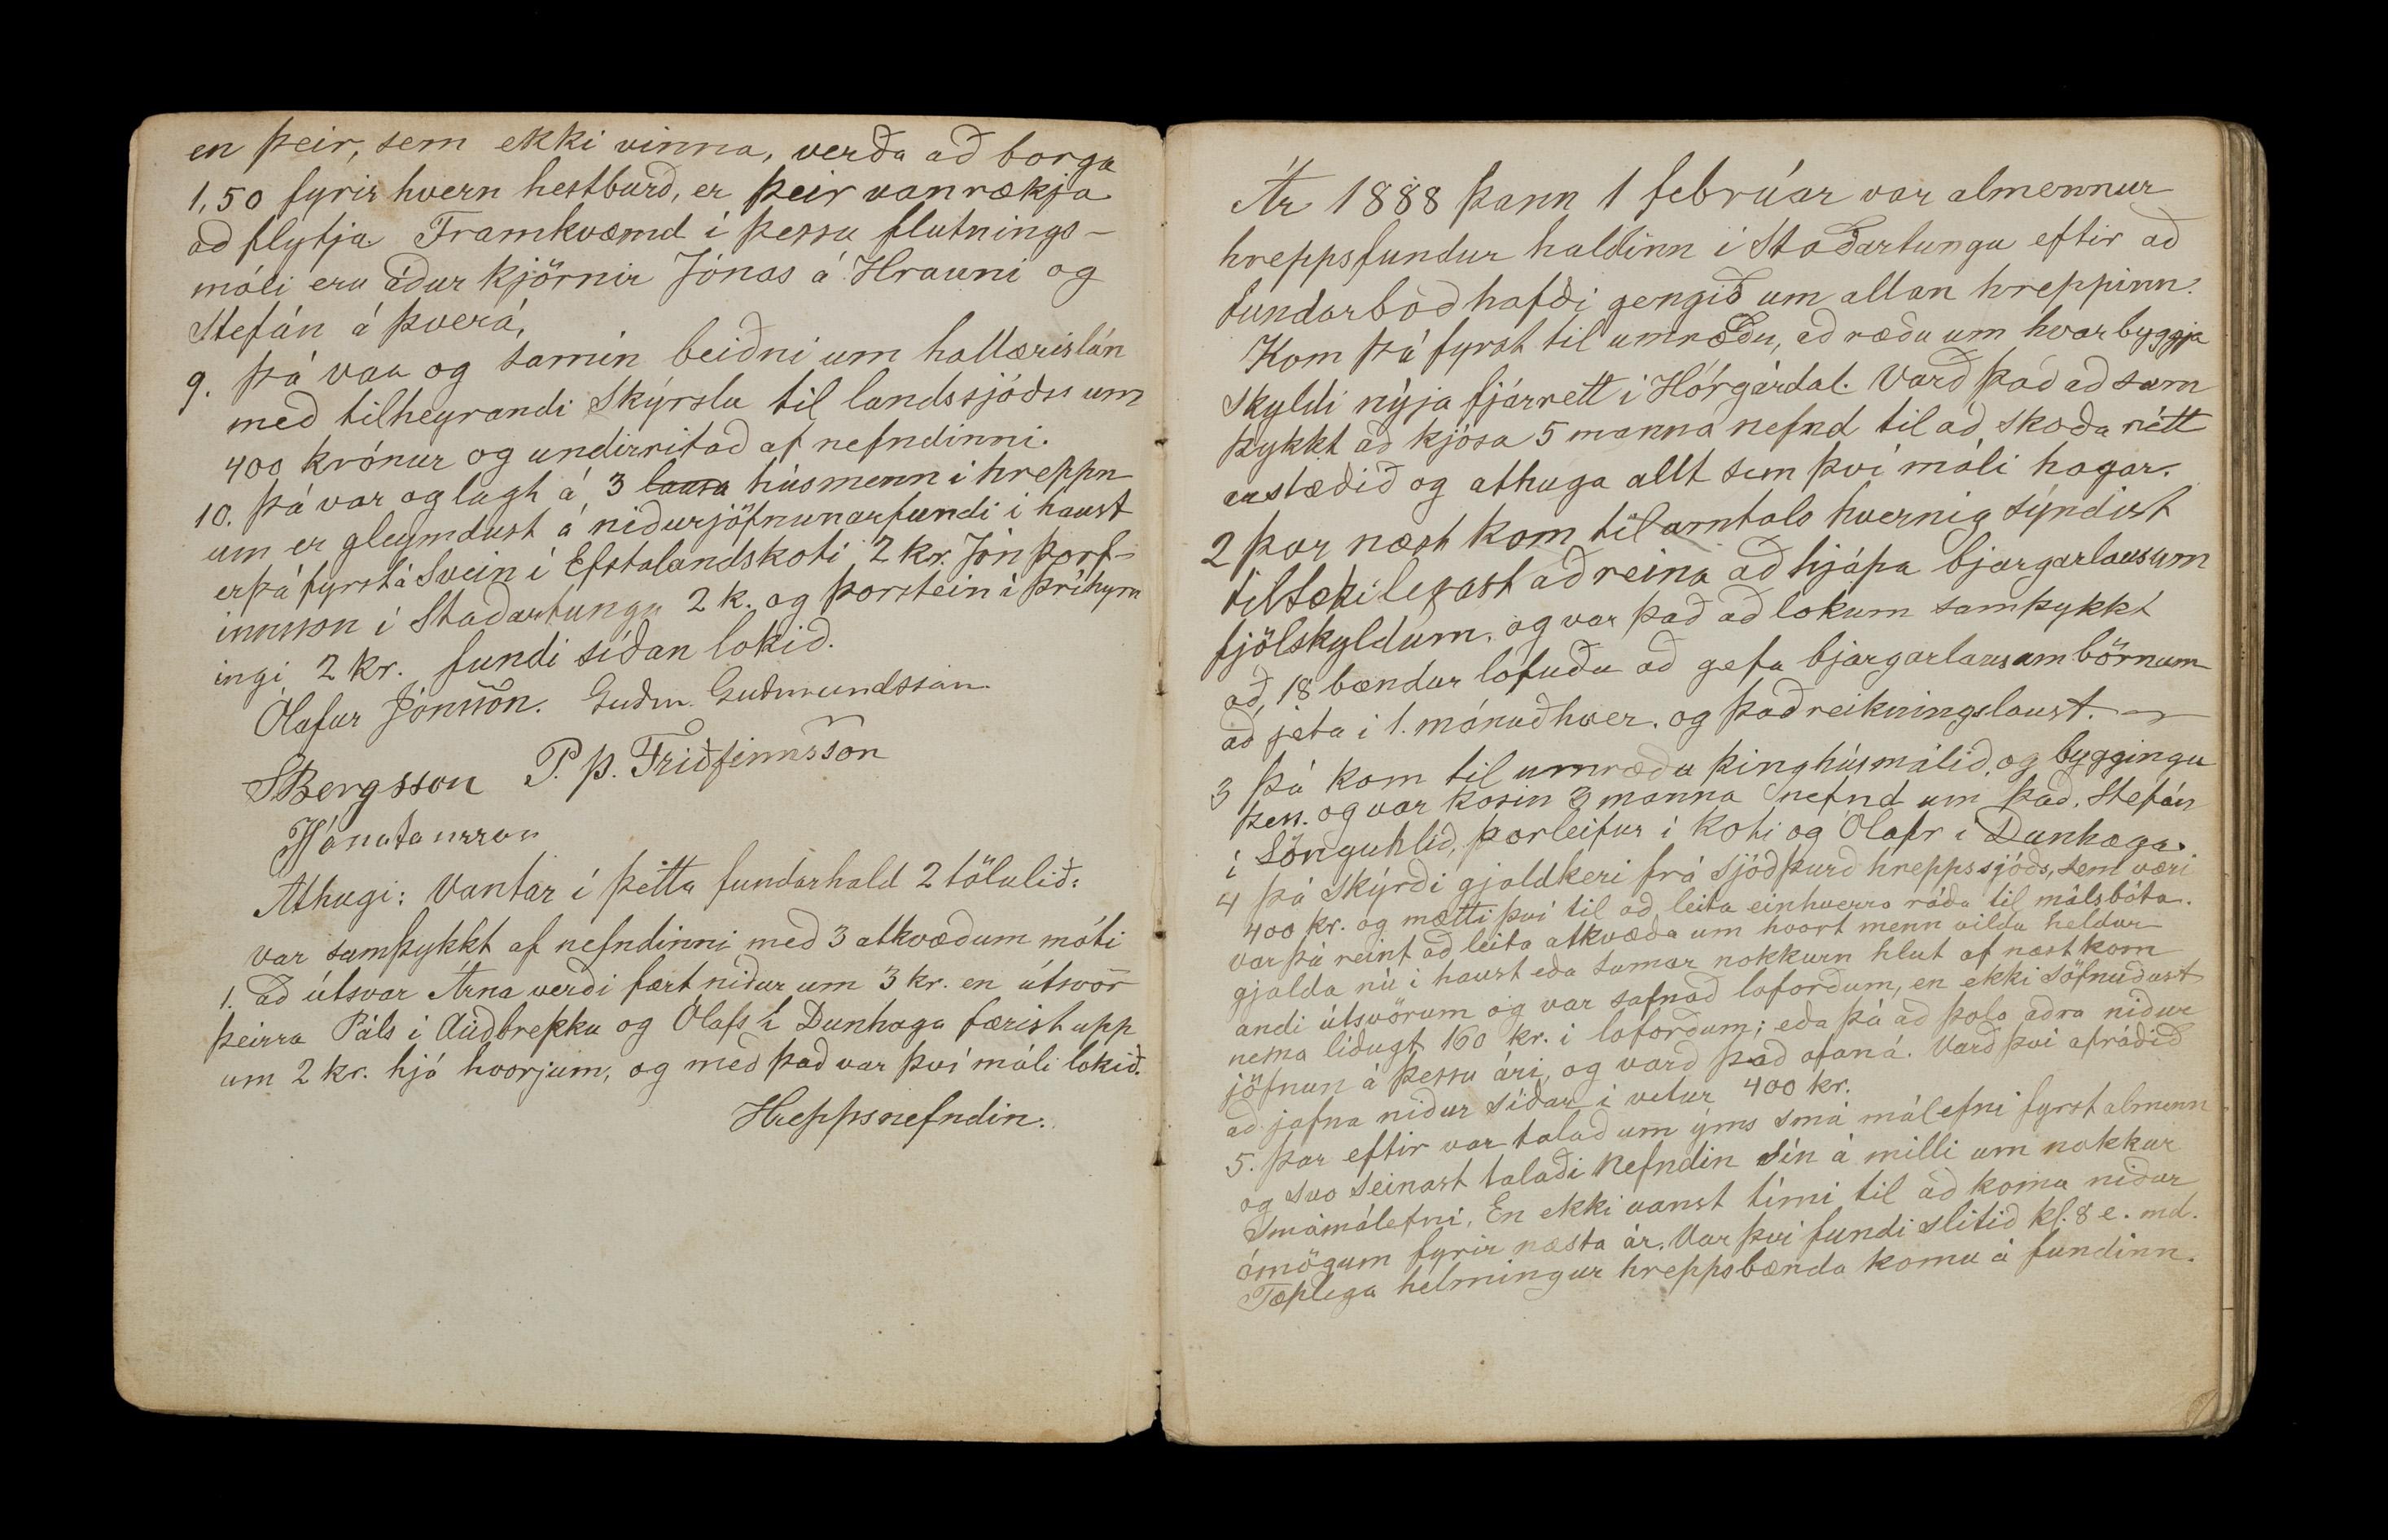 en þeir, sem ekki vinna, verða að borga
1,50 fyrir hvern hestburð, er þeir vanrækja
að flytja Framkvæmd í þessu flutnings-
máli eru áður kjörnir Jónas á Hrauni og
Stefán á Þverá,
9. Þá var og samin beiðni um hallærislán
með tilheyrandi Skýrslu til landssjóðs um
400 krónur og undirritað af nefndinni.
10. Þá var og lagh á 3 lausa húsmenn í hreppn
um er gleymdust á niðurjöfnunarfundi í haust
er þá fyrst á Svein í Efstalandskoti 2 kr. Jón Þorf-
innsson í Staðartungu 2 k. og Þorstein í Þríhyrn
ingi 2 kr. fundi síðan lokið.
Ólafur Jónsson. Guðm. Guðmundsson.
SBergsson P. Þ. Friðfinnsson
JJónatansson
Athugi: Vantar í þetta fundarhald 2 tölulið:
var samþykkt af nefndinni með 3 atkvæðum móti
1. að útsvar Árna verði fært niður um 3 kr. en útsvör
þeirra Páls í Auðbrekku og Ólafs í Dunhaga færist upp
um 2 kr. hjá hvorjum, og með það var því máli lokið.
Hreppsnefndin.
Ár 1888 þann 1 febrúar var almennur
hreppsfundur haldinn í Staðartungu eftir að
fundarboð hafði gengið um allan hreppinn.
Kom þá fyrst til umræðu, að ræða um hvar byggja
skyldi nýja fjárrett í Hörgárdal. Varð það að sam
þykkt að kjósa 5 manna nefnd til að skoða rétt
arstæðið og athuga allt sem því máli hagar.
2 Þar næst kom til umtals hvernig sýndist
tiltækilegast að reina að hjápa bjargarlausum
fjölskyldum. og var það að lokum samþykkt
að, 18 bændur lofuðu að gefa bjargarlausum börnum
að jeta í 1. mánuð hver. og það reikningslaust.
3 Þá kom til umræðu þinghúsmálið, og byggingu
þess. og var kosin 3 manna nefnd um það. Stefán
í Lönguhlíð, Þorleifur í Koti og Ólafr í Dunhaga.
4 Þá skýrði gjaldkeri frá sjóðþurð hreppssjóðs, sem væri
400 kr. og mætti því til að leita einhverra ráða til málsbóta.
var þá reint að leita atkvæða um hvort menn vildu heldur
gjalda nú í haust eða sumar nokkurn hlut af næstkom
andi útsvörum og var safnað loforðum, en ekki söfnuðust
nema liðugt 160 kr. í loforðum; eða þá að þola aðra niður
jöfnun á þessu ári, og varð það ofaná. Varð því afráðið
að jafna niður síðar í vetur 400 kr.
5. Þar eftir var talað um ýms smá málefni fyrst almenn
og svo seinast talaði nefndin sín á milli um nokkur
smámálefni. En ekki vanst tími til að koma niður
ómögum fyrir næsta ár. Var því fundi slitið kl. 8 e. md.
Tæplega helmingur hreppsbænda komu á fundinn.